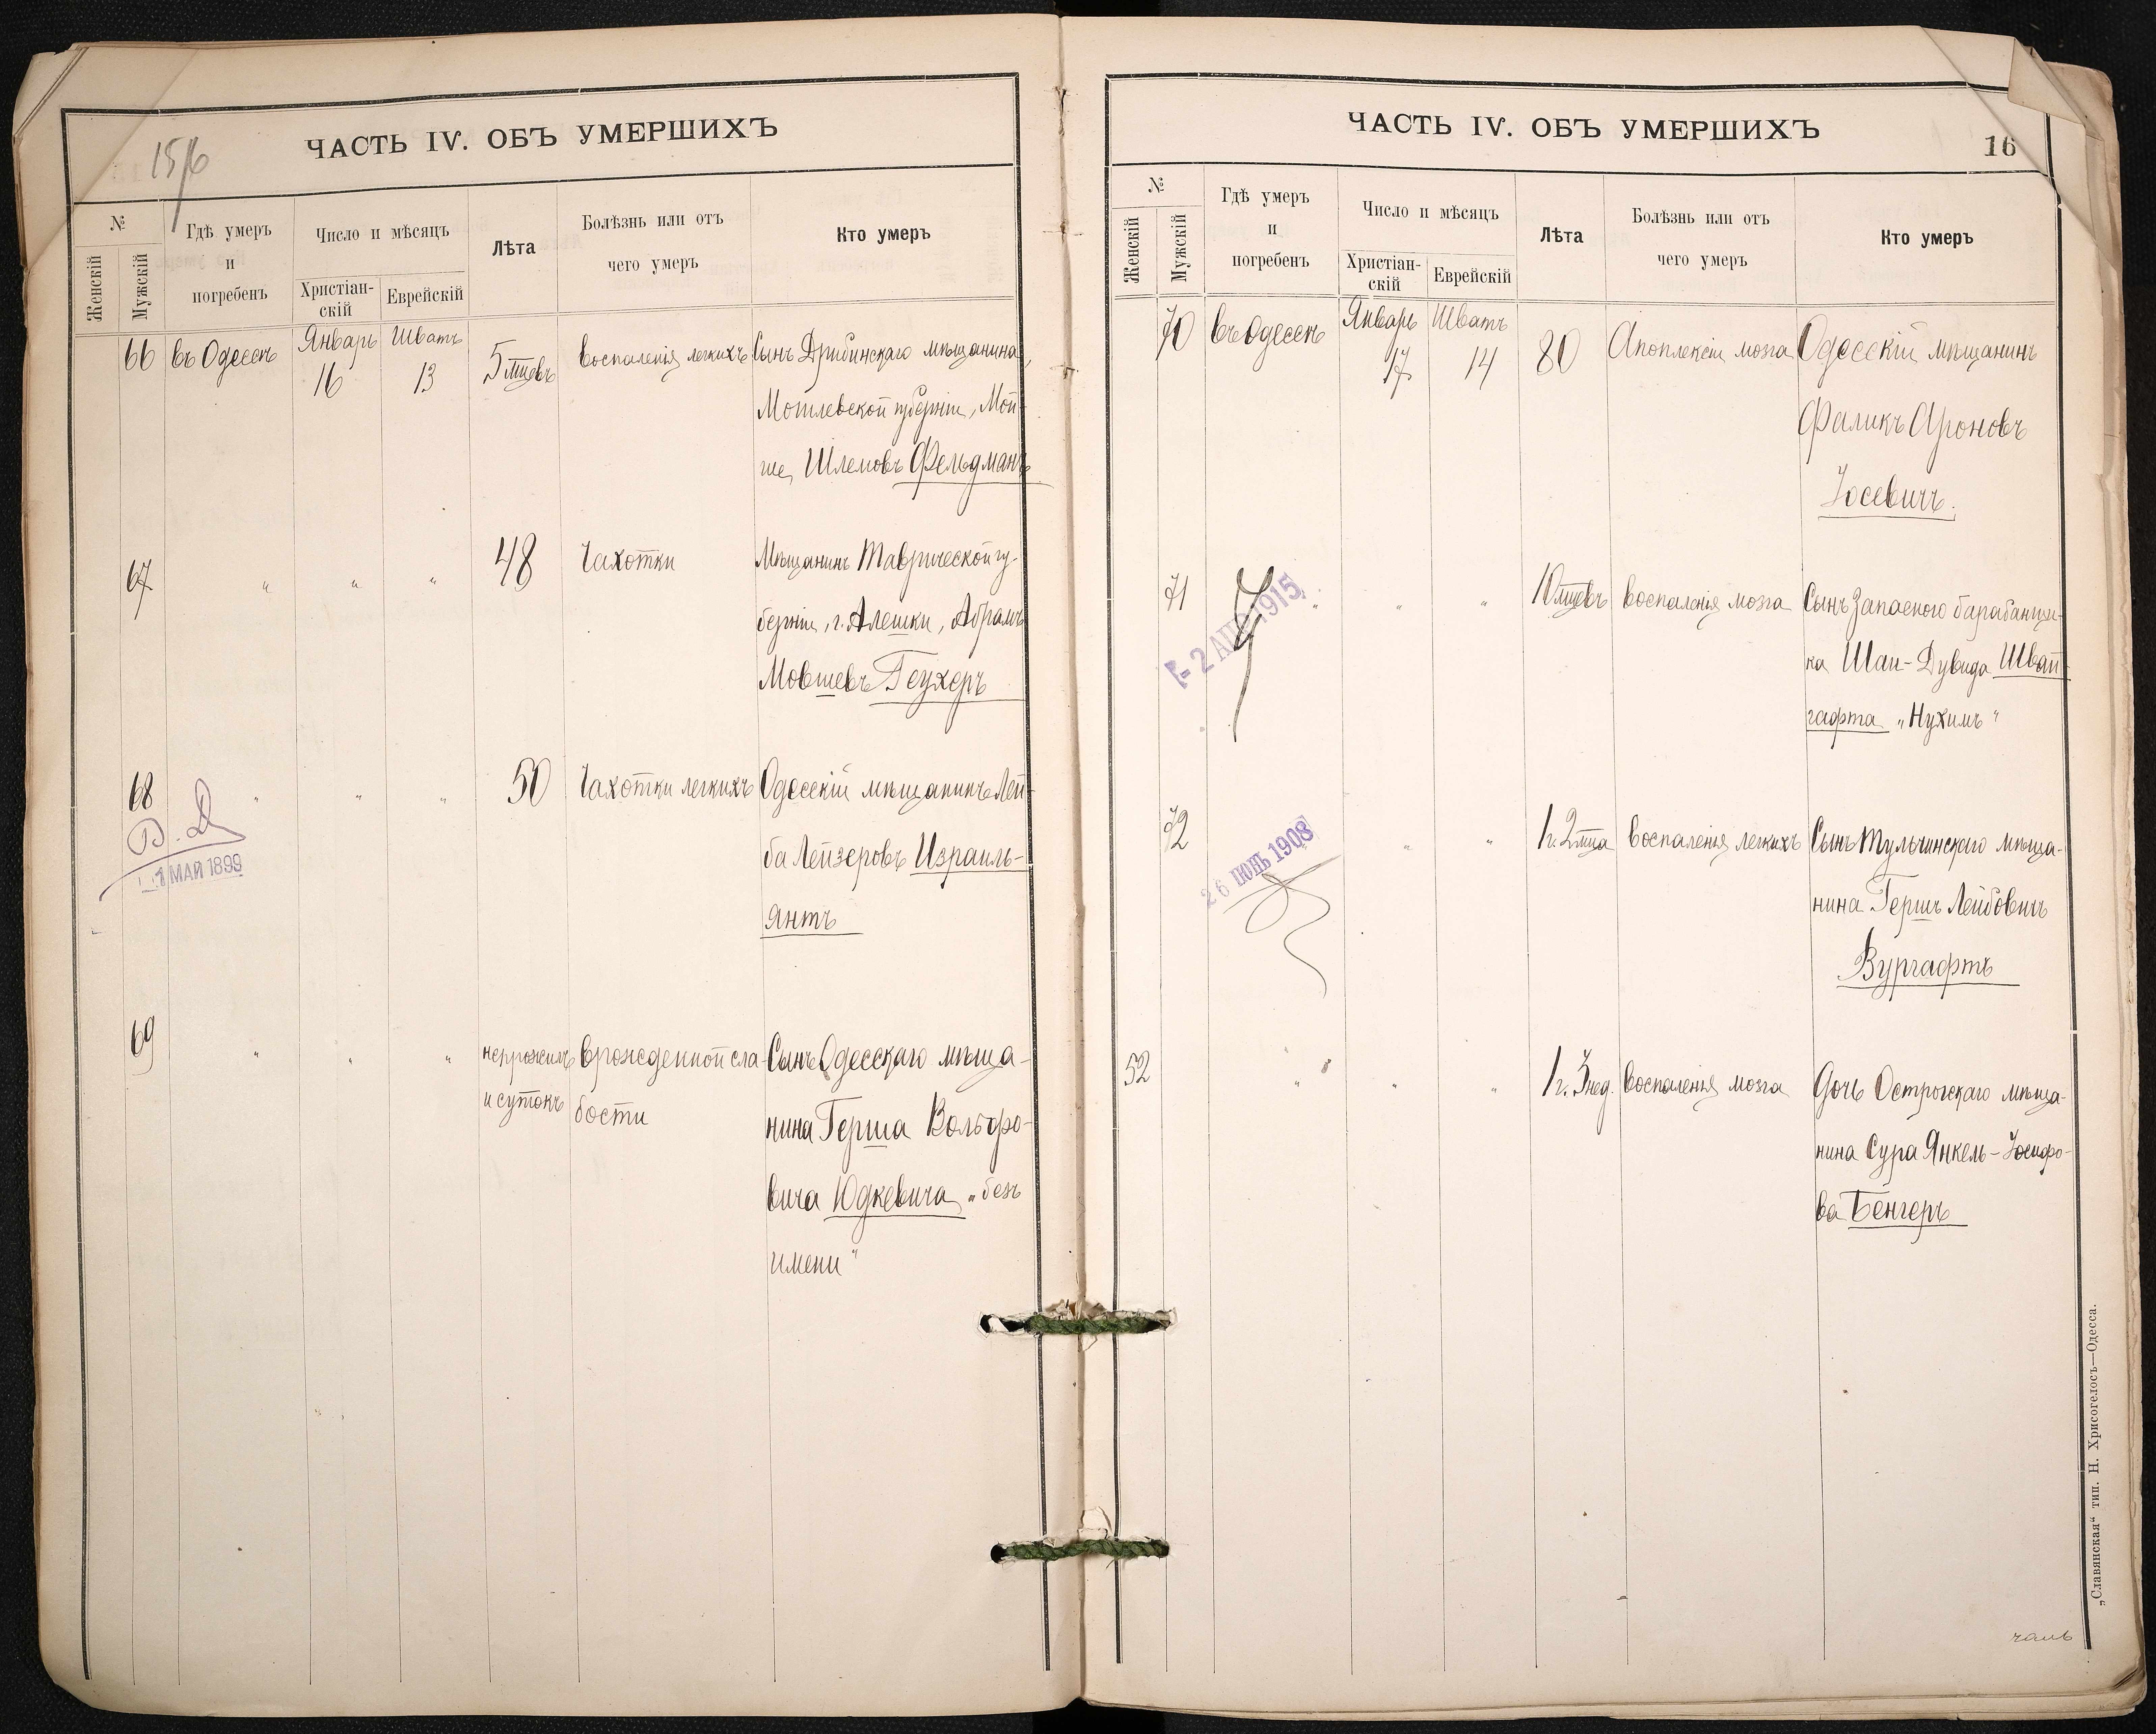 15/16
ЧАСТЬ IV. ОБЪ УМЕРШИХЪ
№
Женскій
Мужскій
Гдѣ умеръ
и
погребенъ
Число и мѣсяцъ
Христіан-
скій
Еврейскій
Лѣта
Болѣзнь или отъ
чего умеръ
Кто умеръ
66 въ Одессѣ Январь 16 Шватъ 13 5 мцевъ воспаленія легкихъ Сынъ Дрибинскаго мѣщанина,
Могилевской губерніи, Мой-
ше, Шлемовъ Фельдманъ
67 " " " 48 Чахотки Мѣщанинъ Таврической гу-
берніи, г. Алешки, Абрамъ
Мовшевъ Геухеръ
68 " " " 50 Чахотки легкихъ Одесскій мѣщанинъ Лей-
ба Лейзеровъ Израиль-
янтъ
В. Д
1 МАЙ 1899
69 " " " непрожилъ врожденной сла- Сынъ Одесскаго мѣща-
и сутокъ бости нина Герша Вольфо-
вича Юдкевича, "безъ
имени"
ЧАСТЬ IV. ОБЪ УМЕРШИХЪ
16
№
Женскій
Мужскій
Гдѣ умеръ
и
погребенъ
Число и мѣсяцъ
Христіан-
скій
Еврейскій
Лѣта
Болѣзнь или отъ
чего умеръ
Кто умеръ
70 въ Одессѣ Январь 17 Шватъ 14 80 Апоплексіи мозга Одесскій мѣщанинъ
Фаликъ Ароновъ
Іосевичъ.
71 " " " 10 мцевъ воспаленія мозга Сынъ запасного барабанщи-
ка Шаи-Дувида Швай-
гафта "Нухимъ"
- 2 АПР 1915
72 " " 1 г. 2 мца воспаленія легкихъ Сынъ Тульчинскаго мѣща-
нина Гершъ Лейбовичъ
Вургафтъ
26 ІЮНЬ 1908
52 " " " 1 г. 3 нед. воспаленія мозга Дочь Острогскаго мѣща-
нина Сура Янкель-Іосифо-
ва Бенгеръ
„Славянская“ тип. Н. Хрисогелосъ—Одесса.